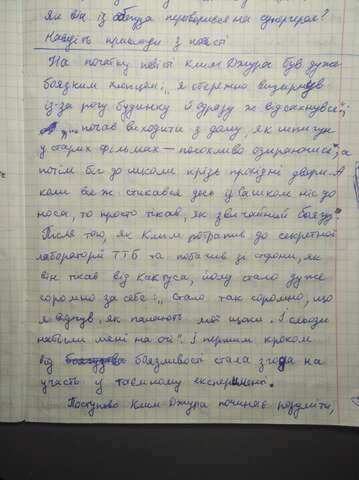 Як він із боягуза перетворився на супергероя?
Наведіть приклади з повісті
На початку повісті Клим Джура був дуже
боязким хлопцем: „я обережно визирнув
із-за рогу будинку й одразу ж відсахнувся";
„ почав виходити з дому, як шпигун
у старих фільмах – полохливо озираючись", а
потім біг до школи крізь прохідні двори. А
коли все ж стикався десь із Вашком ніс до
носа, то просто тікав, як звичайний боягуз.
Після того, як Клим потрапив до секретної
лабораторії ТТБ та побачив зі сторони, як
він тікав від Кактуса, йому стало дуже
соромно за себе: „ Стало так соромно, що
я відчув, як палають мої щоки. І сльози
набігли мені на очі". І першим кроком
від боязливості стала згода на
участь у таємному експерименті.
Поступово Клим Джура починає розуміти,